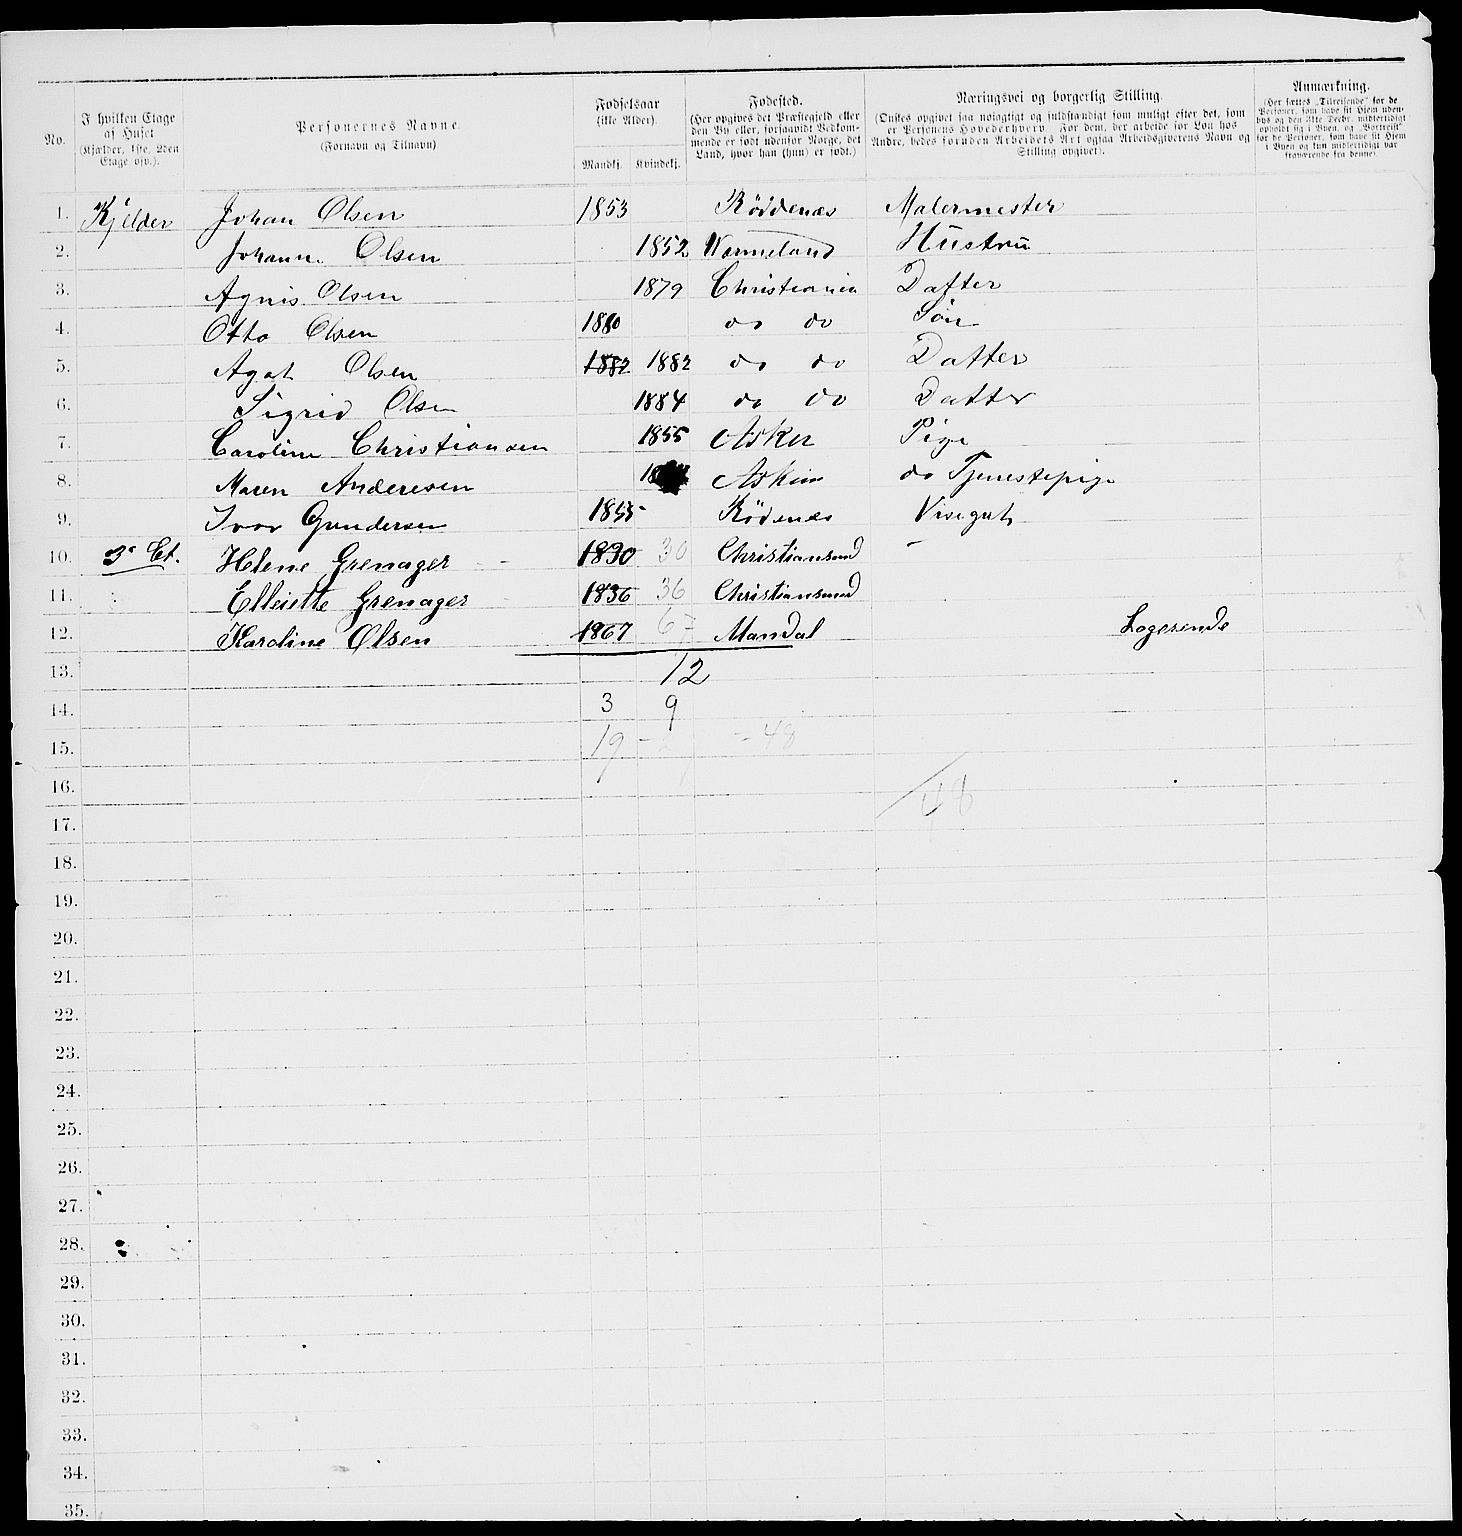 No.
I hvilken Etage af Huset (Kjælder, 1ste, 2den Etage osv.).
Personernes Navne (Fornavn og Tilnavn)
Fødselsaar (ikke Alder).
Mandkj. Kvindekj.
Fødested. (Her opgives det Præstegjeld eller den By eller, forsaavidt Vedkommende er født udenfor Norge, det Land, hvor han (hun) er født.)
Næringsvei og borgerlig Stilling. (Ønskes opgivet saa nøiagtigt og fuldstændigt som muligt efter det, som er Personens Hovederhverv. For dem, der arbeide for Løn hos Andre, bedes foruden Arbeidets Art ogsaa Arbeidsgiverens Navn og Stilling opgivet).
Anmærkning. (Her sættes „Tilreisende" for de Personer, som have sit Hjem udenbys og den 31te Decbr. midlertidigt opholdt sig i Byen, og „Bortreist" for de Personer, som have sit Hjem i Byen og kun midlertidigt var fraværende fra denne).
1. Kjelder Johan Olsen 1853 Røddenæs Malermester
2. Johanne Olsen 1852 Warmeland Hustru
3. Agnis Olsen 1879 Christiania Dafter
4. Otto Olsen 1880 do do Søn
5. Agat Olsen 1882 1882 do do Datter
6. Sigrid Olsen 1884 do do Datter
7. Caroline Christiansen 1855 Asker Pige
8. Maren Anderesen 18 Askim do Tjenestepige
9. Ivar Gundersen 1855 Rødenæs Visegut
10. 3e Et. Helene Grenager 1830 30 Christiansund -
11. Ellevette Grenager 1836 36 Christiansund
12. Karoline Olsen 1867 67 Mandal Logerende
13. 12
14. 3 9
15. 19 - - 48
16. 48
17.
18.
19.
20.
21.
22.
23.
24.
25.
26.
27.
28.
29.
30.
31.
32.
33.
34.
35.